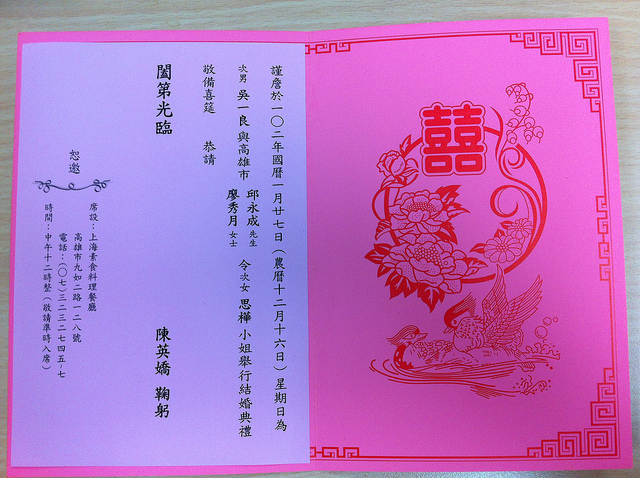 囍
謹詹於一〇二年國曆一月廿七日（農曆十二月十六日）星期日為
次男 吳一良與高雄市 邱永成先生 廖秀月女士 令次女 思樺 小姐舉行結婚典禮
敬備喜筵 恭請
闔第光臨
陳英嬌 鞠躬
恕邀
席設：上海素食料理餐廳
高雄市九如二路一二八號
電話：（〇七）三二三二七四五～七
時間：中午十二時整（敬請準時入席）